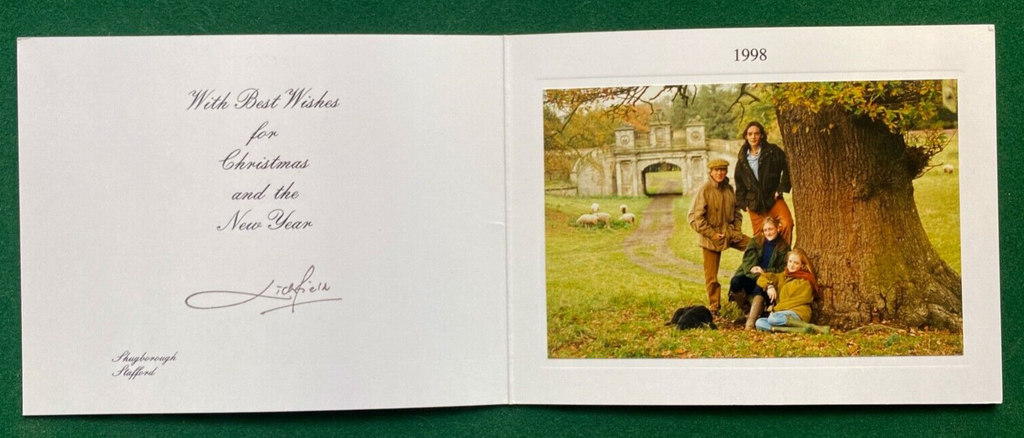 With Best Wishes
for
Christmas
and the
New Year
Lichfield
Shugborough
Stafford
1998